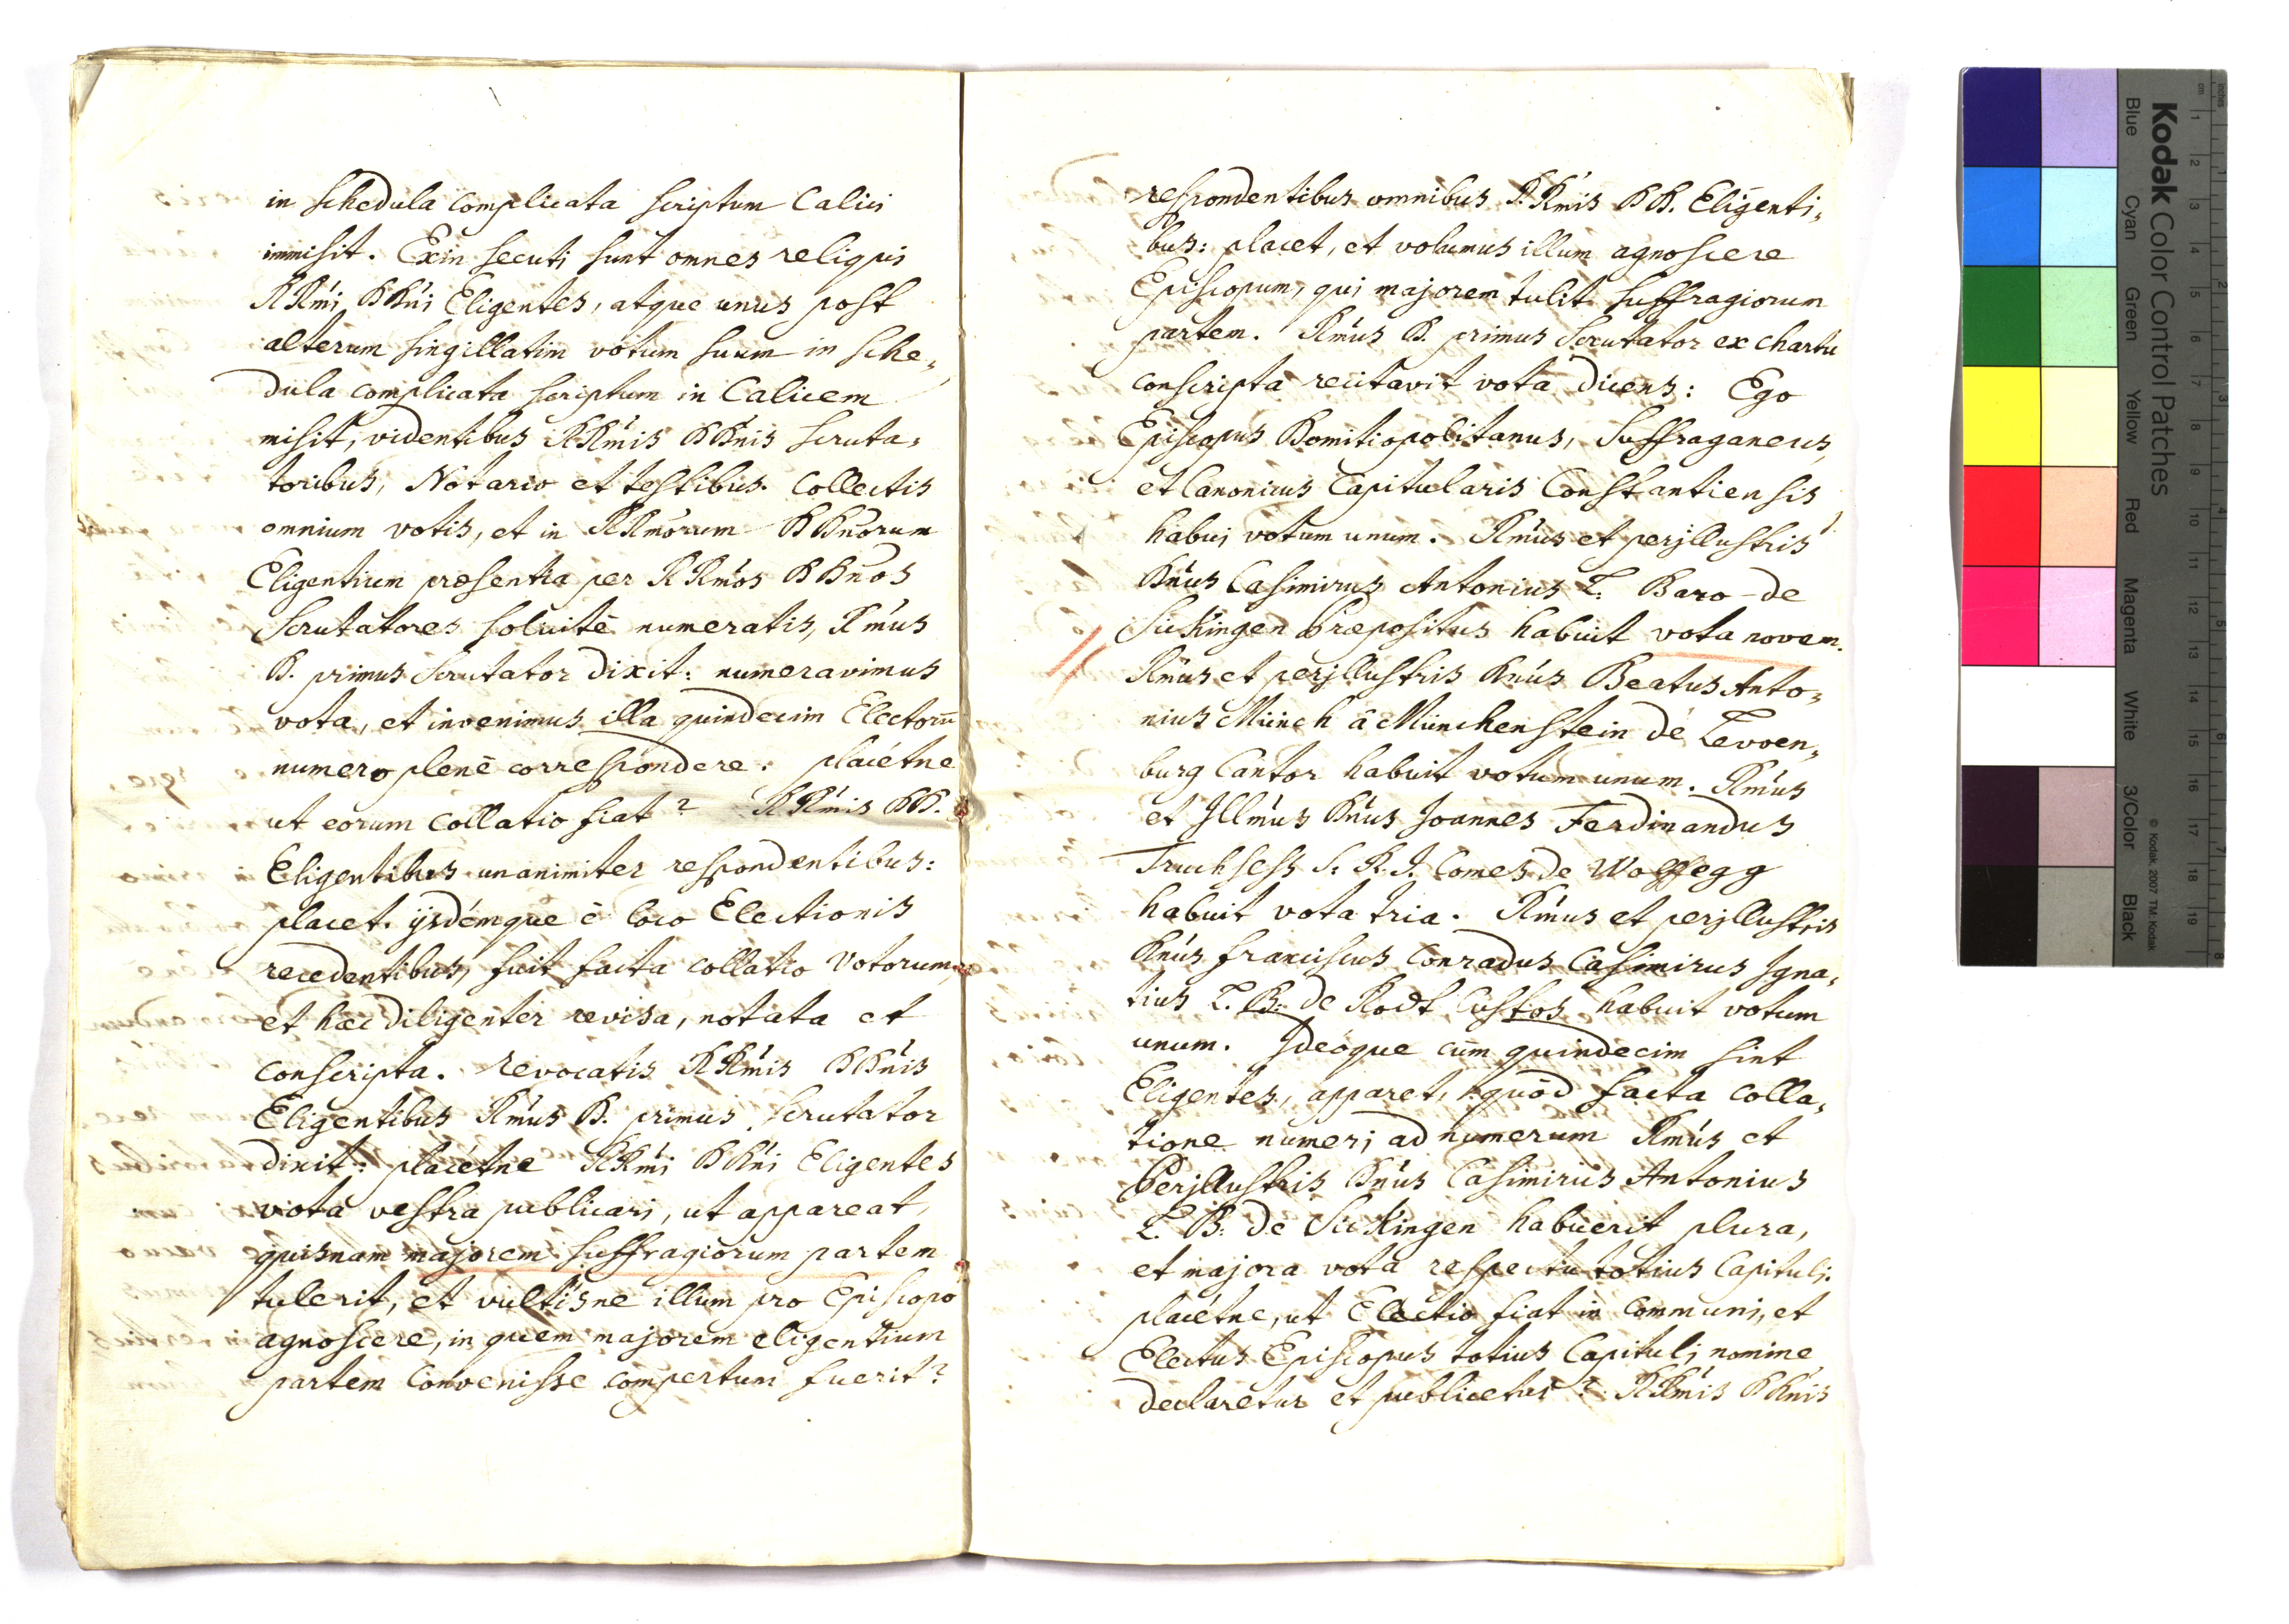 in schedula complicata scriptum Calici
immisit. Exin secuti sunt omnes reliqui
RRmi DDni Eligentes, atque unus post
alterum singillatim votum suum in sche„
dula complicata scriptum in Calicem
misit, videntibus RRmis DDnis scruta„
toribus, Notario et testibus. Collectis
omnium votis, et in RRmorum DDnorum
Eligentium præsentia per RRmos DDnos
Scrutatores solicitè numeratis, Rmus
D. primus Scrutator dixit: numeravimus
vota, et invenimus illa quindecim Electorū
numero plenè correspondere: placétne
ut eorum collatio fiat? RRmis DD.
Eligentibus unanimiter respondentibus:
placet. ijsdémque è loco Electionis
recedentibus, fuit facta collatio Votorum,
et hæc diligenter revisa, notata et
conscripta. revocatis RRmis DDnis
Eligentibus Rmus D. primus Scrutator
dixit: placétne RRmi DDni Eligentes
vota vestra publicari, ut appareat,
quisnam majorem suffragiorum partem
tulerit, et vultisne illum pro Episcopo
agnoscere, in quem majorem eligentium
partem Convenisse compertum fuerit?
respondentibus omnibus RRmis DD. Eligenti„
bus: placet, et volumus illum agnoscere
Episcopum, qui majorem tulit suffragiorum
partem. Rmus D. primus Scrutator ex charta
conscripta recitavit vota dicens: Ego
Episcopus Domitiopolitanus, Suffraganeus,
et Canonicus Capitularis Constantiensis
habui votum unum. Rmus et perjllustris
Dnus Casimirus Antonius L. Baro de
Sickingen Præpositus habuit vota novem.
Rmus et perjllustris Dnus Beatus Anto„
nius Münch à Münchenstein de Levven„
burg Cantor habuit votum unum. Rmus
et Jllmus Dnus Joannes Ferdinandus
Truchsess S. R. J. Comes de Wolffegg
habuit vota tria. Rmus et perjllustris
Dnus Franciscus Conradus Casimirus Igna„
tius L. B: de Rodt Custos habuit votum
unum. Ideòque cùm quindecim sint
Eligentes, apparet, quòd facta colla„
tione numeri ad numerum Rmus et
Perjllustris Dnus Casimirus Antonius
L. B: de Sickingen habuerit plura,
et majora vota respectu totius Capituli.
placétne, ut Electio fiat in Communi, et
Electus Episcopus totius Capituli nomine
declaretur et publicetur? RRmis DDnis
Kodak Color Control Patches
Blue Cyan Green Yellow Red Magenta White 3/Color Black
© Kodak, 2007 TM: Kodak
cm 1 2 3 4 5 6 7 8 9 10 11 12 13 14 15 16 17 18 19
inches 1 2 3 4 5 6 7 8